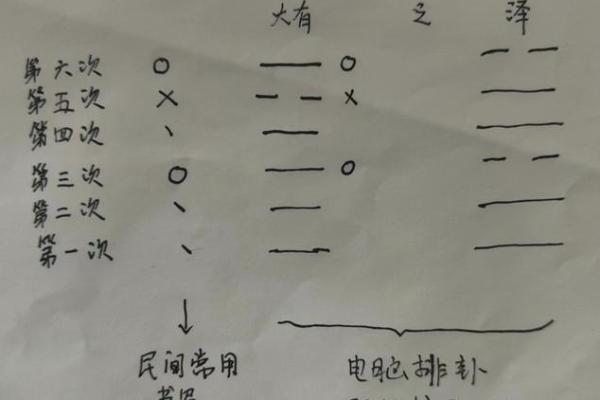 大有 之 泽
第六次 ○ ○
第五次 × ×
第四次 、
第三次 ○ ○
第二次 、
第一次 、
民间常用 电脑排卦